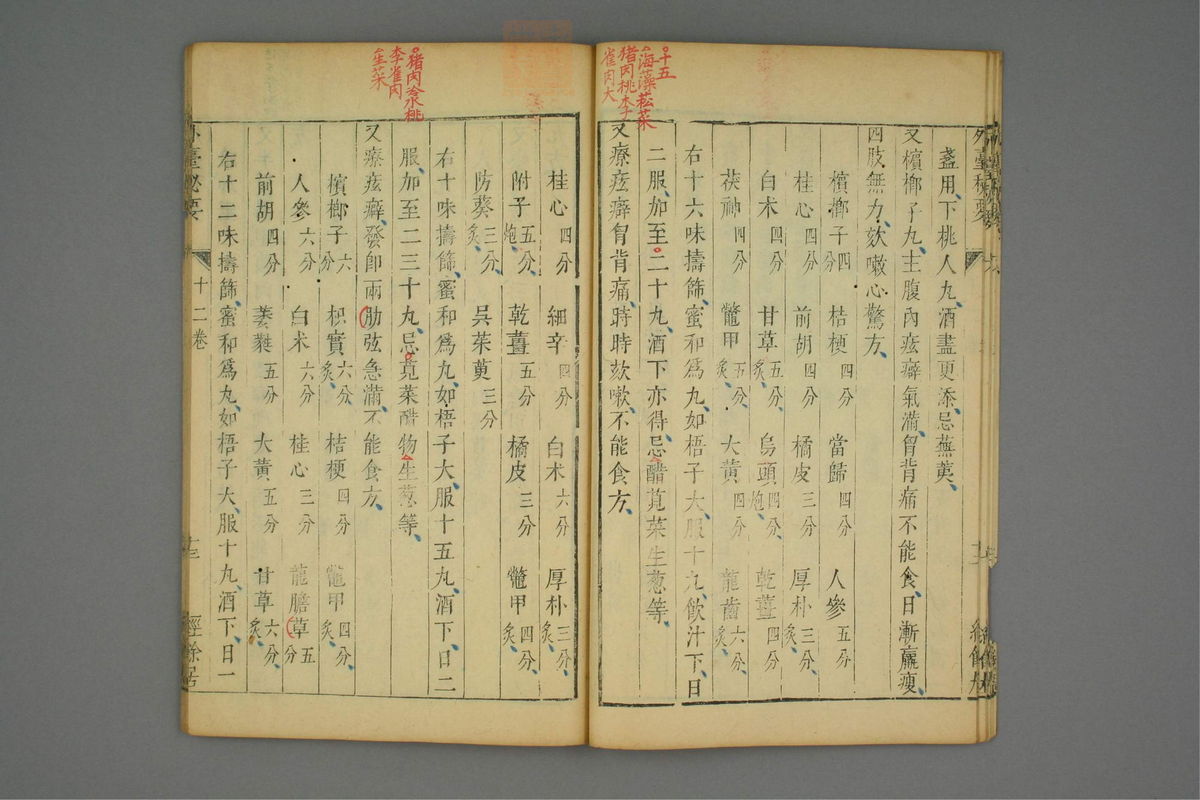 盞用下桃人丸酒盡更添忌蕪荑
又檳榔子丸主腹內痃癖氣滿胷背痛不能食日漸羸瘦
四肢無力欬嗽心驚方
檳榔子四分 桔梗四分 當歸四分 人參五分
桂心四分 前胡四分 橘皮三分 厚朴三分炙
白朮四分 甘草五分炙 烏頭四分炮 乾薑四分
茯神四分 鼈甲五分炙 大黃四分 龍齒六分炙
右十六味擣篩蜜和爲丸如梧子大服十丸飲汁下日
二服加至二十丸酒下亦得忌醋莧菜生葱等
又療痃癖胷背痛時時欬嗽不能食方
十五
海藻菘菜
猪肉桃李
雀肉大
桂心四分 細辛四分 白朮六分 厚朴三分炙
附子五分炮 乾薑五分 橘皮三分 鼈甲四分炙
防葵三分炙 吳茱萸三分
右十味擣篩蜜和爲丸如梧子大服十五丸酒下日二
服加至二三十丸忌莧菜醋物生葱等
又療痃癖發卽兩肋弦急滿不能食方
猪肉冷水桃
李雀肉
生菜
檳榔子六分 枳實六分炙 桔梗四分 鼈甲四分炙
人參六分 白朮六分 桂心三分 龍膽草五分
前胡四分 薑蕤五分 大黃五分 甘草六分炙
右十二味擣篩蜜和爲丸如梧子大服十丸酒下日一
外臺祕要 十二卷 十三 經餘居